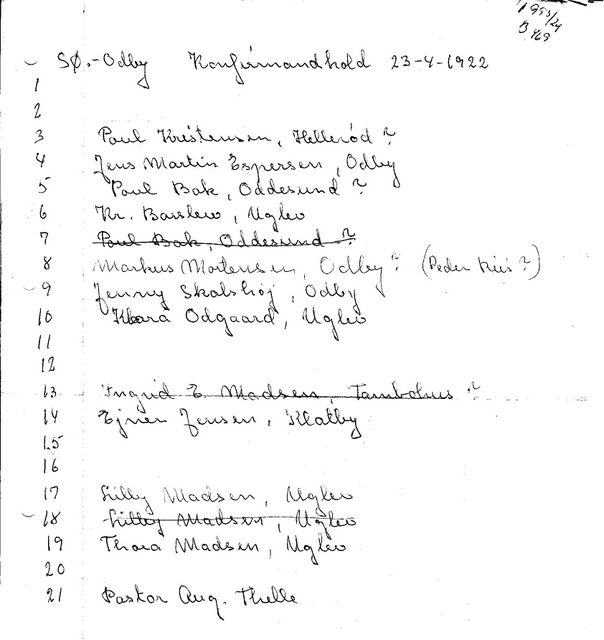 1953/24
B 469
SØ.-Odby Konfirmandhold 23-4-1922
1
2
3 Poul Kristensen, Hellerød ?
4 Jens Martin Espersen, Odby
5 Poul Bak, Oddesund ?
6 Kr. Barslev, Uglev
7 Poul Bak, Oddesund ?
8 Markus Mortensen, Odby ? (Peder Kiis ?)
9 Jenny Skalshøj, Odby
10 Klara Odgaard, Uglev
11
12
13 Ingrid E. Madsen, Tambohus ?
14 Ejner Jensen, Kla
15
16
17 Lilly Madsen, Uglev
18 Lilly Madsen, Uglev
19 Thora Madsen, Uglev
20
21 Pastor Aug. Thelle